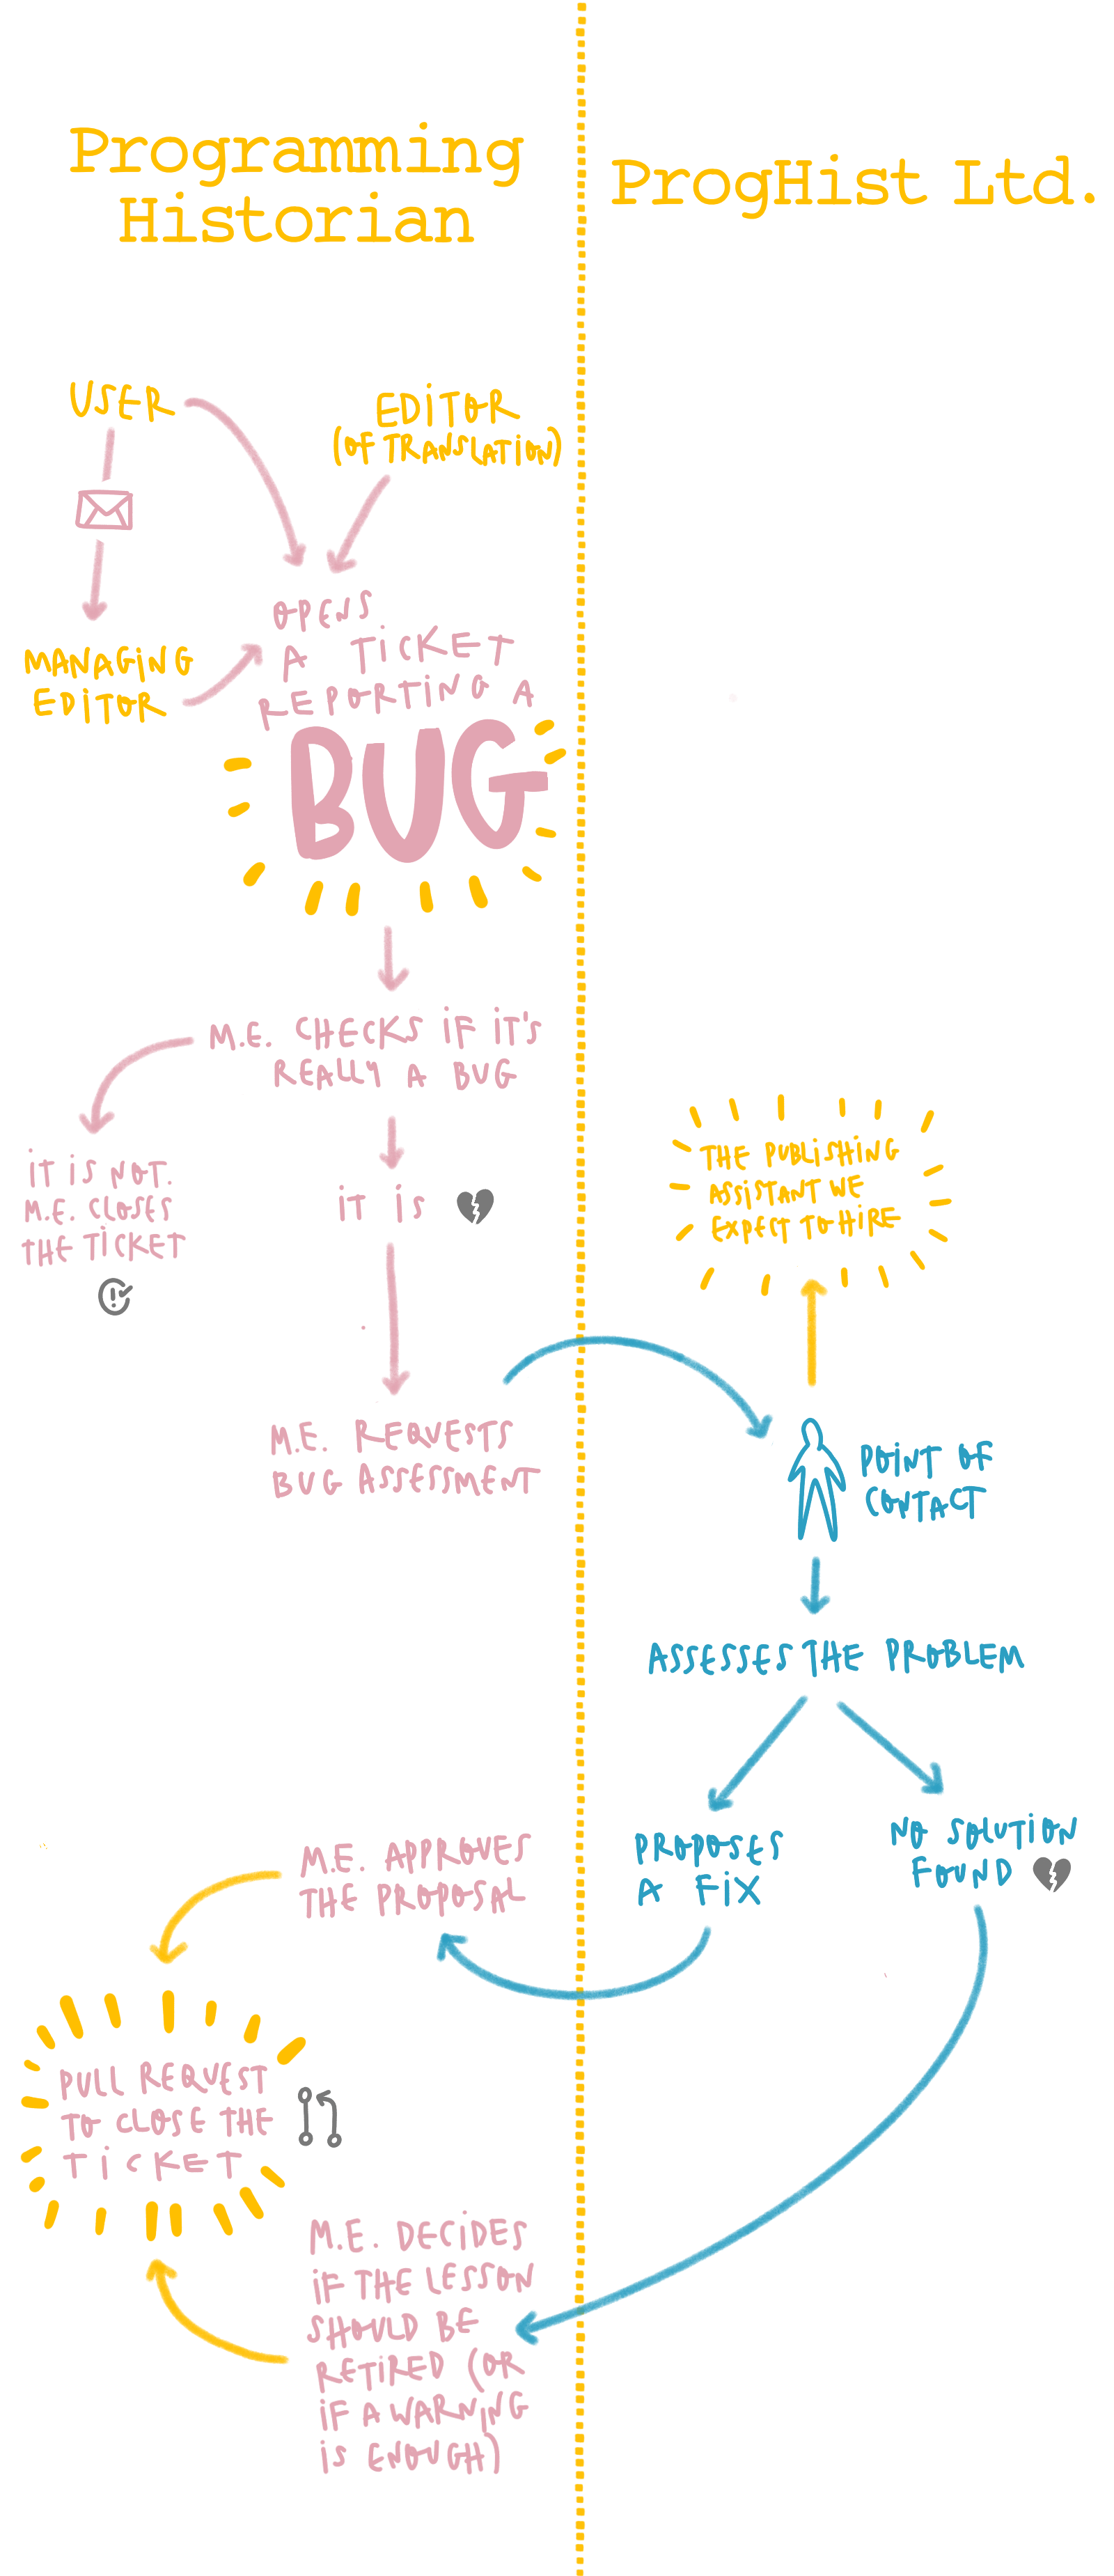 Programming
Historian
ProgHist Ltd.
USER
EDITOR
(OF TRANSLATION)
MANAGING
EDITOR
OPENS
A TICKET
REPORTING A
BUG
M.E. CHECKS IF IT'S
REALLY A BUG
IT IS NOT.
M.E. CLOSES
THE TICKET
IT IS
THE PUBLISHING
ASSISTANT WE
EXPECT TO HIRE
M.E. REQUESTS
BUG ASSESSMENT
POINT OF
CONTACT
ASSESSES THE PROBLEM
PROPOSES
A FIX
NO SOLUTION
FOUND
M.E. APPROVES
THE PROPOSAL
PULL REQUEST
TO CLOSE THE
TICKET
M.E. DECIDES
IF THE LESSON
SHOULD BE
RETIRED (OR
IF A WARNING
IS ENOUGH)